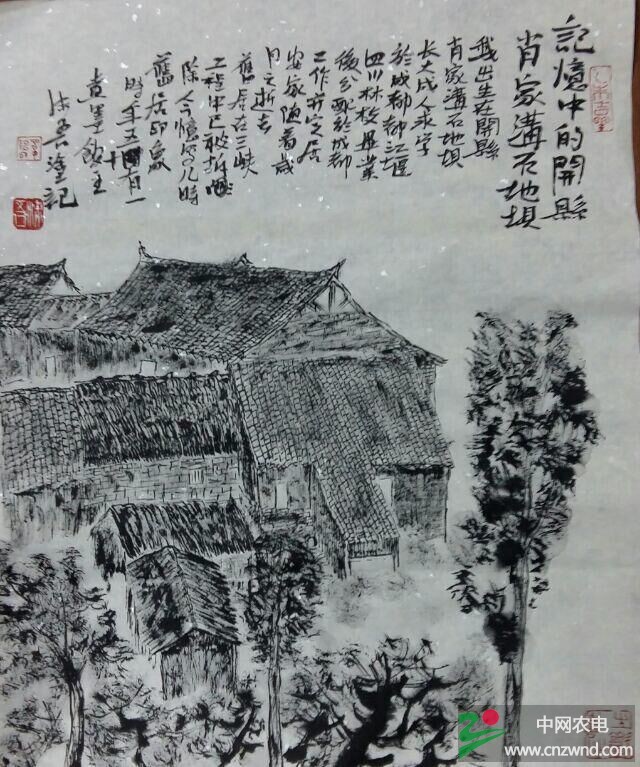 記憶中的開縣
肖家溝石地垻
我出生在開縣
肖家溝石地垻
長大成人求学
於成都都江堰
四川林校畢業
後分配於成都
工作并定居
安家随着歲
月之逝去
舊居在三峡
工程中已被拆
除今憶寫儿時
舊居印象
時年五十有一
塗記
中网农电
www.cnzwnd.com